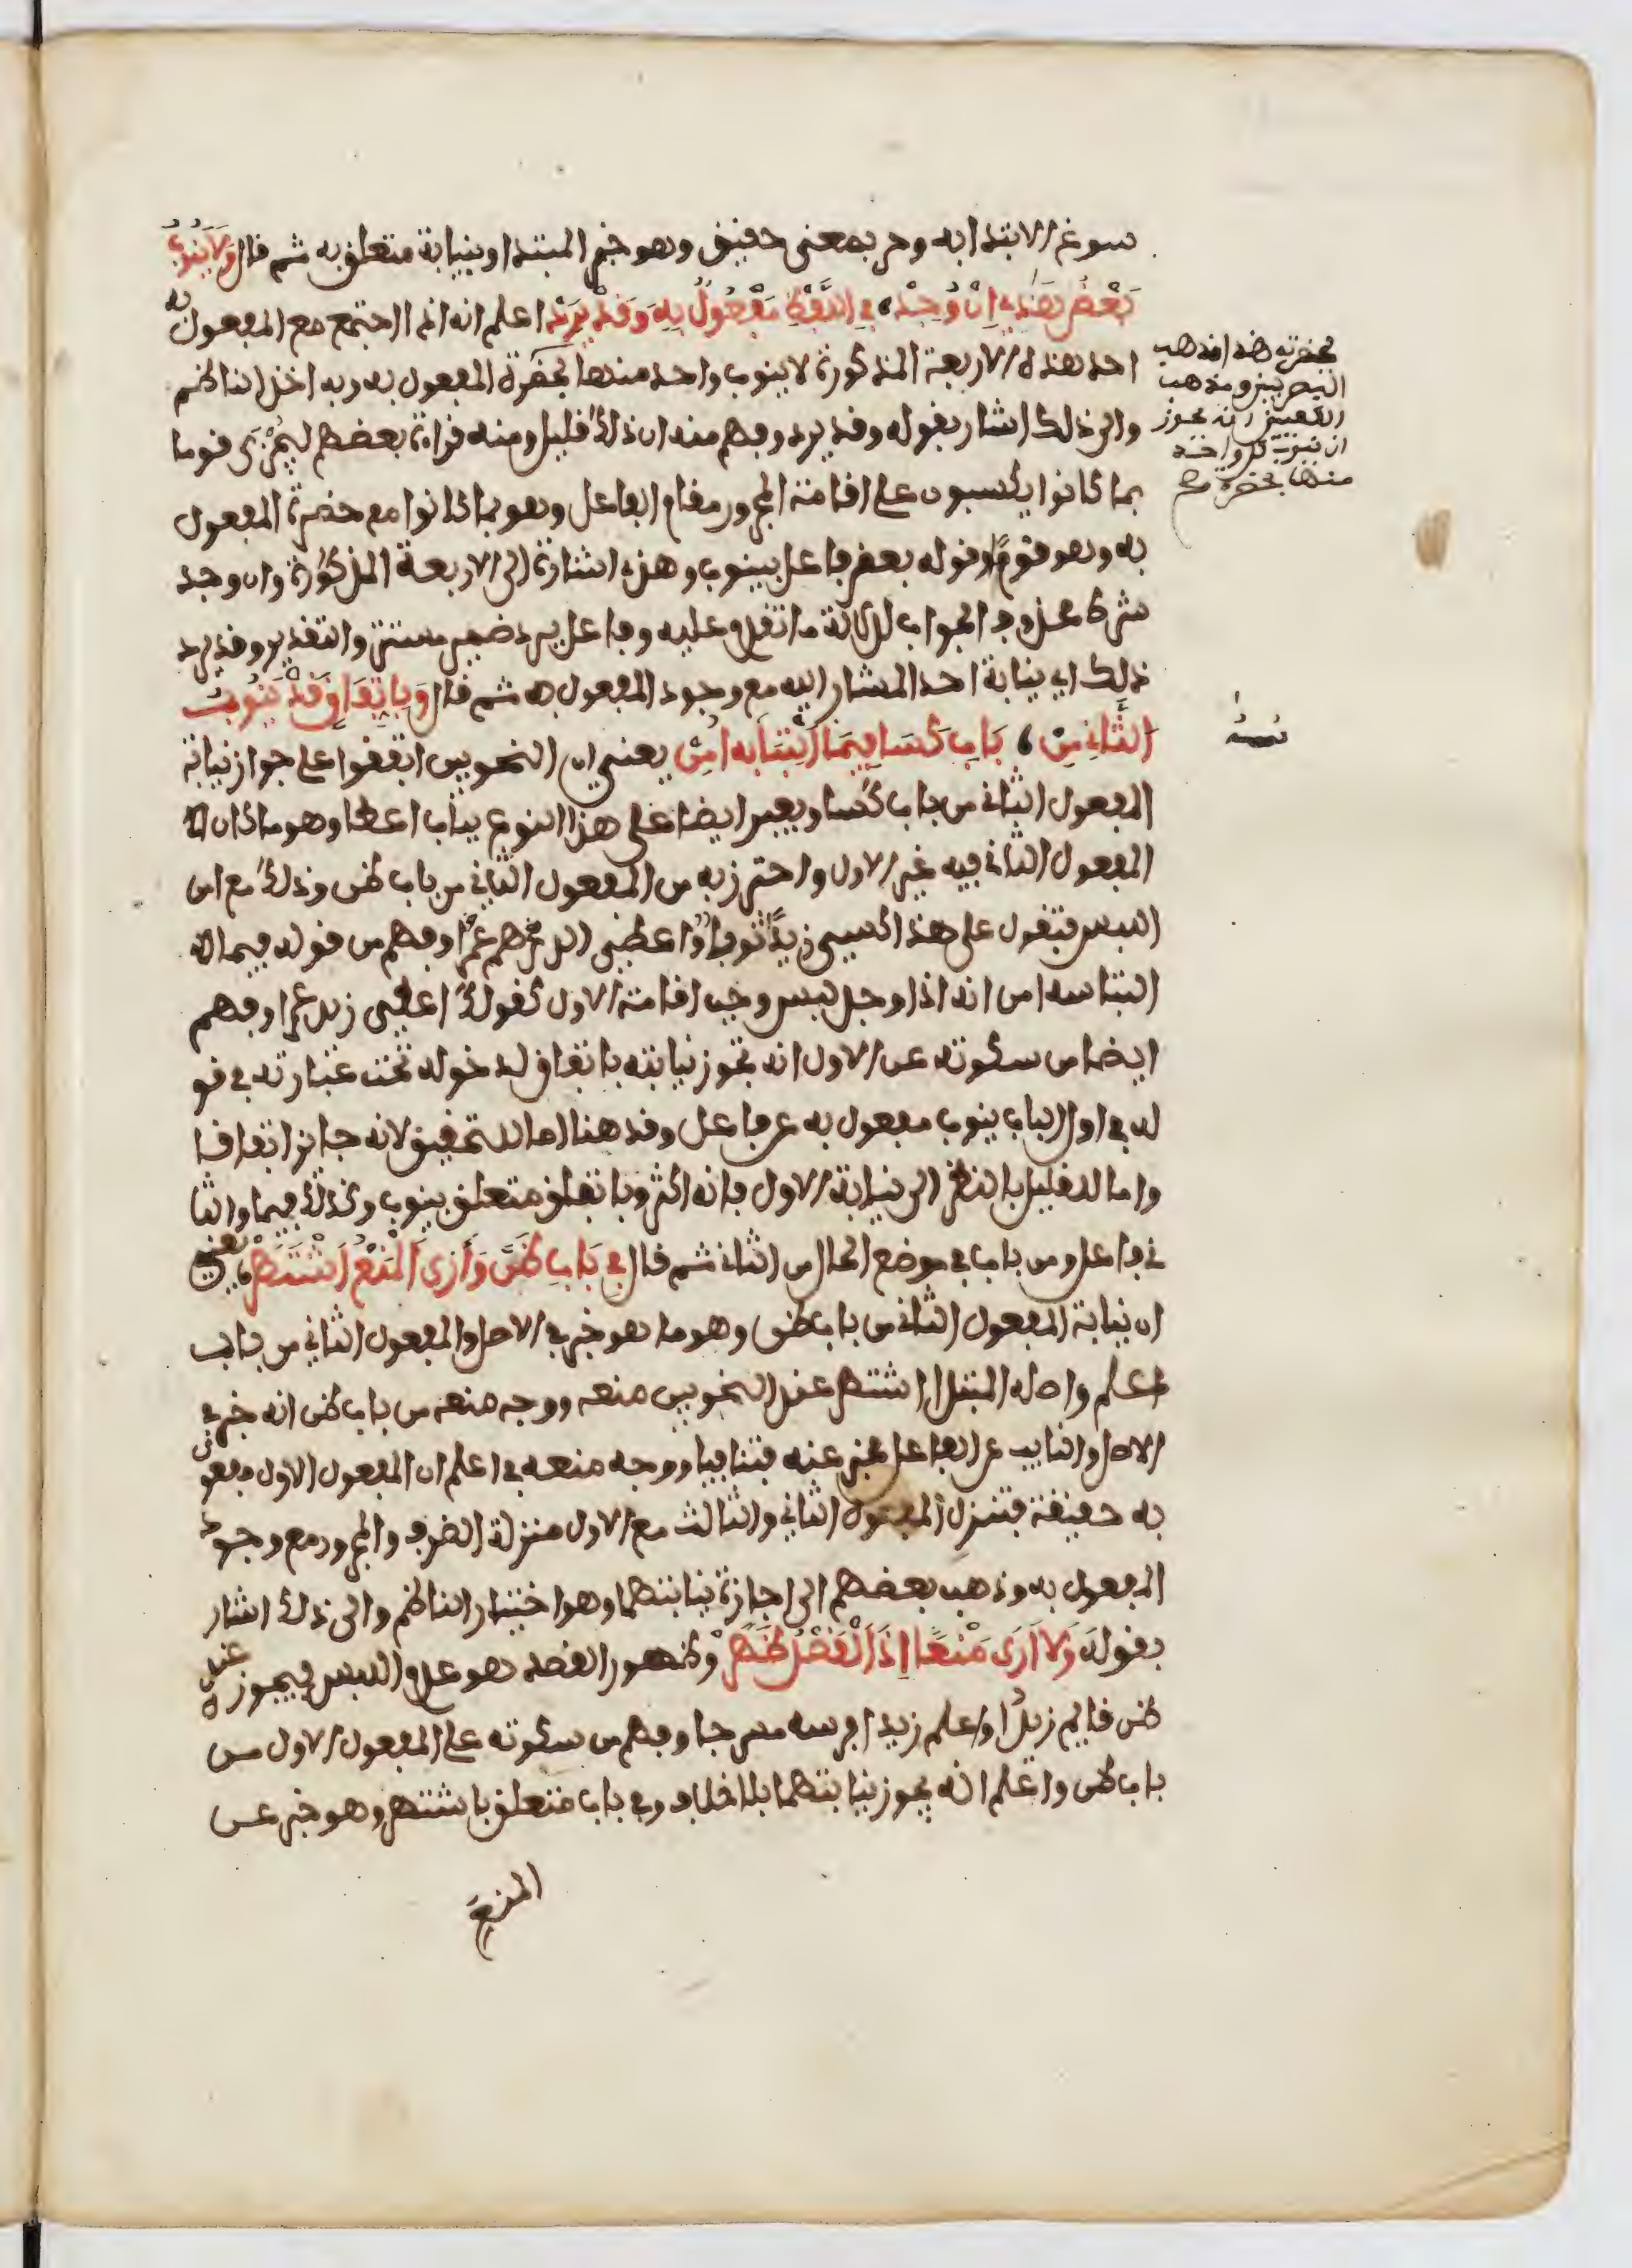 سوغ الابتدا به وحر بمعنى حقيق وهو خبر المبتدا وبنيابة متعلق به ثم قال وَلَا يَنُوبُ
بَعْضُ هَذِي إِنْ وُجِدْ فِي اللَّفْظِ مَفْعُولٌ بِهِ وَقَدْ يَرِدْ اعلم انه اذا اجتمع مع المفعول به
احد هذه الاربعة المذكورة لا ينوب واحد منها بحضرة المفعول به وبه اخذ الناظم
والى ذلك اشار بقوله وقد يرد وفهم منه ان ذلك قليل ومنه قراءة بعضهم ليُجْزَى قوما
بما كانوا يكسبون على اقامة المجرور مقام الفاعل وهو بما كانوا مع حضرة المفعول
به وهو قومًا وقوله بعض فاعل بينوب وهذي اشارة الى الاربعة المذكورة وان وجد
شرط محذوف الجواب لدلالة ما تقدم عليه وفاعل يرد ضمير مستتر والتقدير وقد يرد
ذلك اي نيابة احد المشار اليه مع وجود المفعول به ثم قال وَبِاتِّفَاقٍ قَدْ يَنُوبُ
الثَّانِ مِنْ بَابِ كَسَا فِيمَا الْتِبَاسُهُ أُمِنْ يعني ان النحويين اتفقوا على جواز نيابة
المفعول الثاني من باب كسا ويعبر ايضا على هذا النوع بباب اعطا وهو ما كان
المفعول الثاني فيه غير الاول واحترز به من المفعول الثاني من باب ظن وذلك مع امن
اللبس فتقول على هذا كسي زيدًا ثوبٌ واعطي درهم عمرًا وفهم من قوله فيما
التباسه امن انه اذا وجد لبس وجب اقامة الاول كقولك اعطي زيد عمرا وفهم
ايضا من سكوته عن الاول انه تجوز نيابته باتفاق لدخوله تحت عبارته في قو
له في اول الباب ينوب مفعول به عن فاعل وقد هنا اما للتحقيق لانه جايز اتفاقا
واما للتقليل بالنظر الى نيابة الاول فانه اكثر وباتفاق متعلق بينوب وكذلك فيما والثا
ني فاعل ومن باب في موضع الحال من الثاني ثم قال فِي بَابِ ظَنَّ وَأَرَى الْمَنْعُ اشْتَهَرْ يعني
ان نيابة المفعول الثاني من باب ظن وهو ما هو خبر في الاصل والمفعول الثاني من باب
اعلم واصله المبتدا اشتهر عند النحويين منعه ووجه منعه من باب ظن انه خبر في
الاصل والنايب عن الفاعل مخبر عنه فتنافيا ووجه منعه في اعلم ان المفعول الاول مفعول
به حقيقة فتنزل المفعول الثاني والثالث مع الاول منزلة الظرف والمجرور مع وجود
المفعول به وذهب بعضهم الى اجازة نيابتهما وهو اختيار الناظم والى ذلك اشار
بقوله وَلَا أَرَى مَنْعًا إِذَا الْقَصْدُ ظَهَرْ وظهور القصد هو عدم اللبس فيجوز عنده
ظن قايم زيدًا واعلم زيدا فرسه مسرجا وفهم من سكوته على المفعول الاول من
باب ظن واعلم انه يجوز نيابتهما بلا خلاف وفي باب متعلق باشتهر وهو خبر عن
المنع
بحضرته هذا مذهب
البصريين ومذهب
الكوفيين انه يجوز
ان تنوب كل واحدة
منها بحضرته